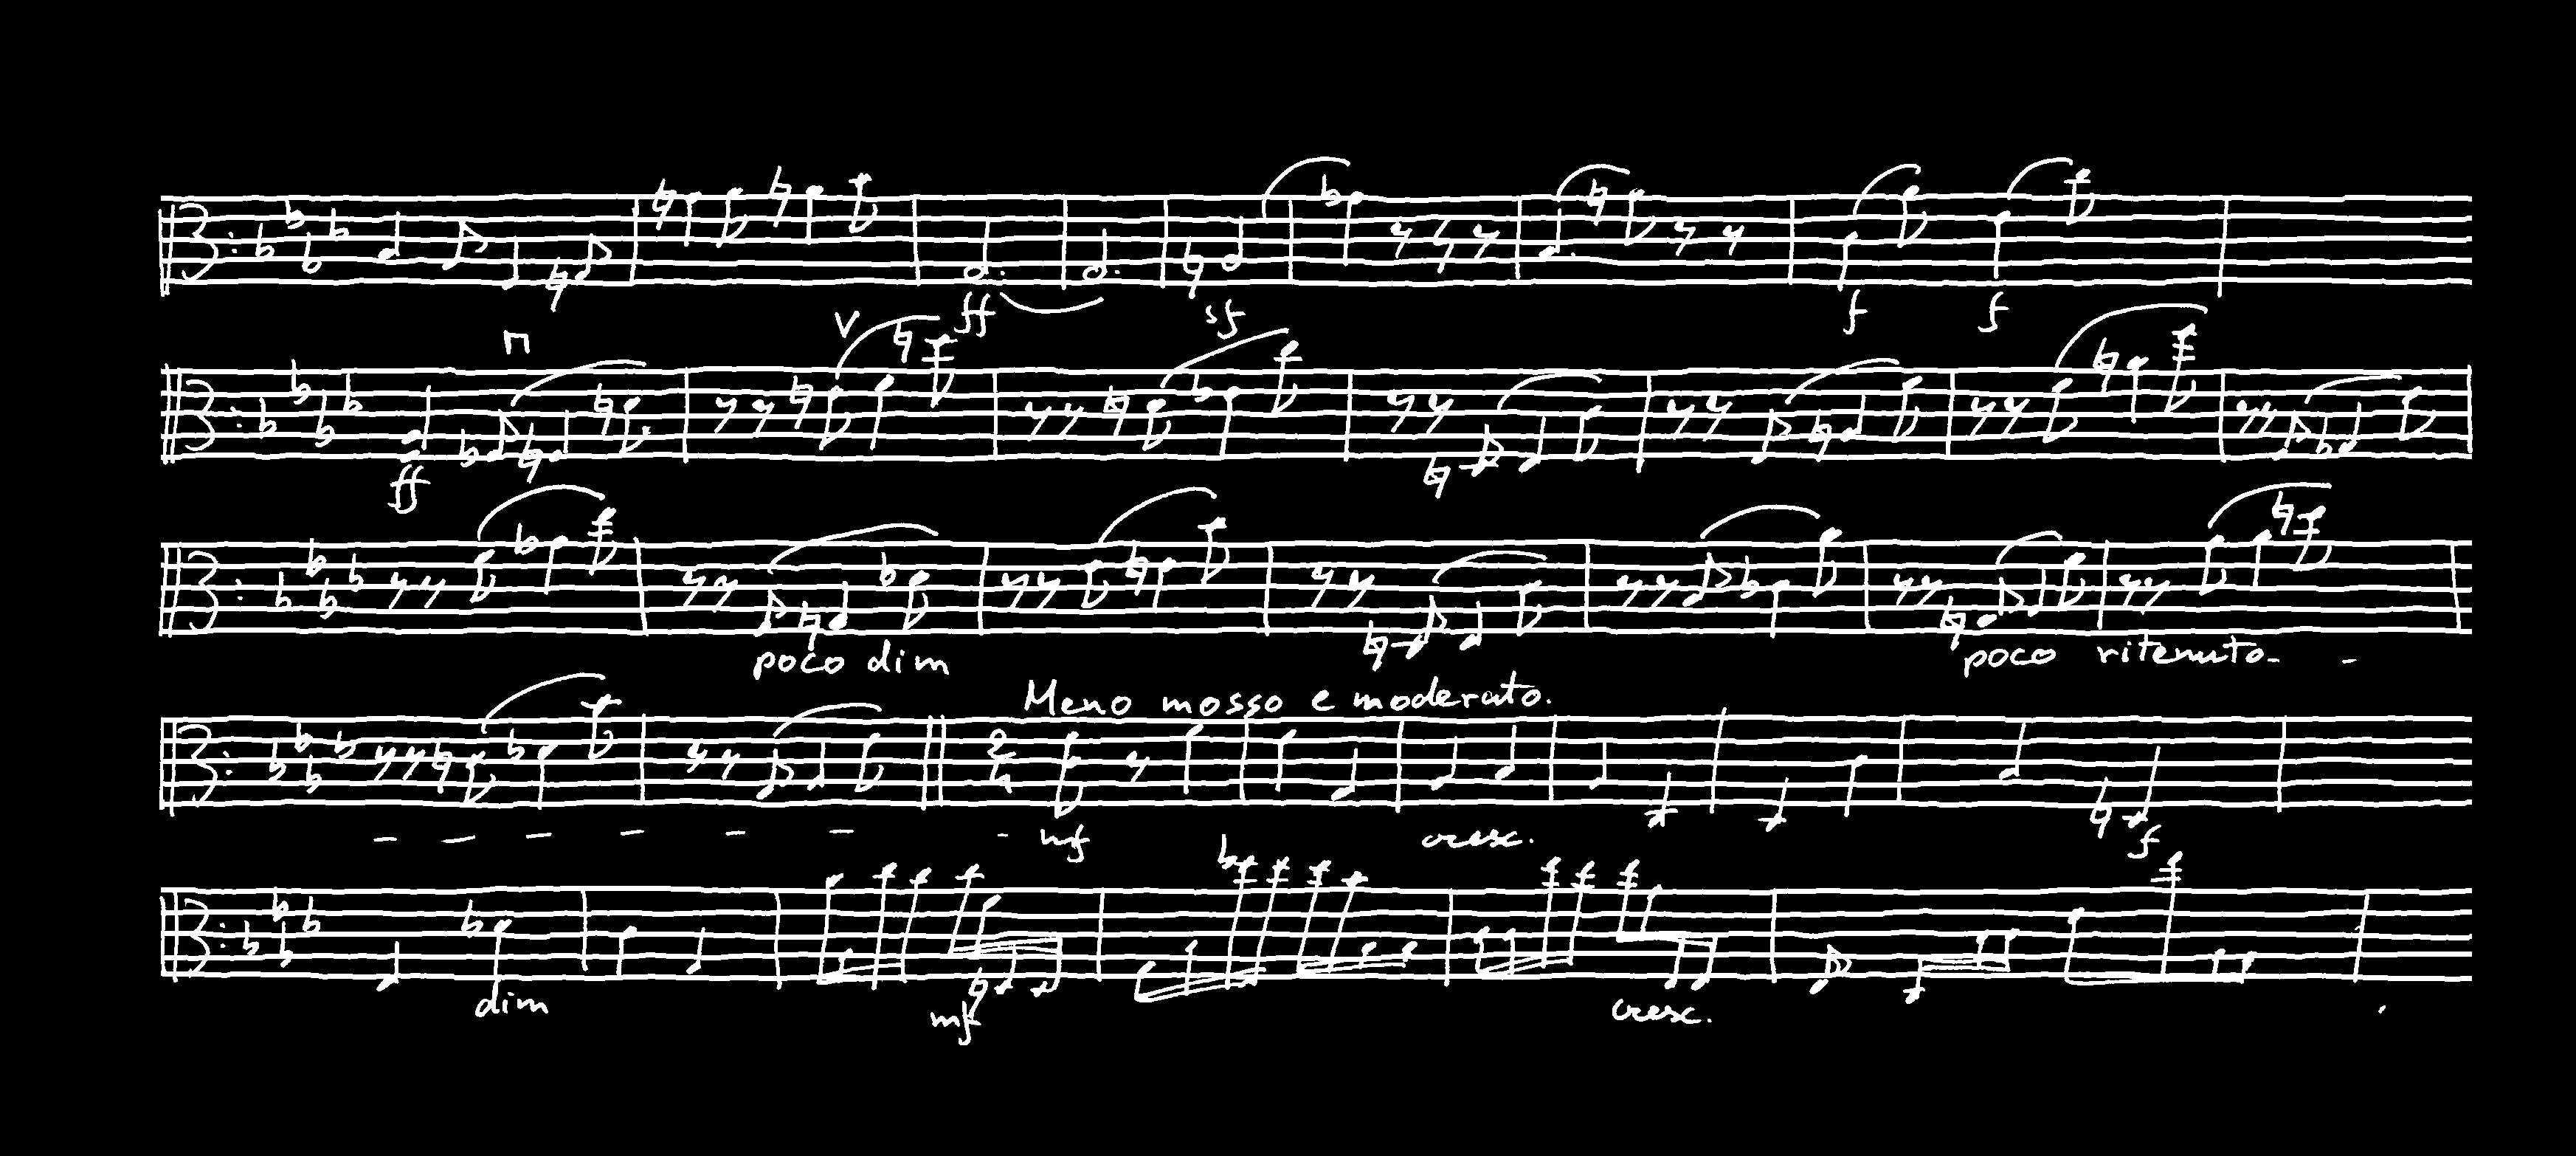 ff sf f f
ff
poco dim poco ritenuto - -
Meno mosso e moderato.
- - - - - - - mf cresc. f
dim mf cresc.